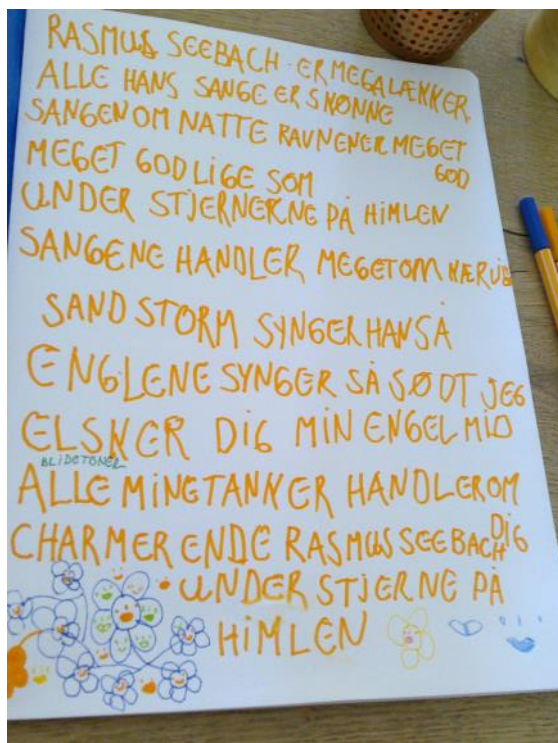 RASMUS SEEBACH ER MEGALÆKKER
ALLE HANS SANGE ER SKØNNE
SANGEN OM NATTE RAVNENER MEGET
GOD
MEGET GOD LIGE SOM
UNDER STJERNERNE PÅ HIMLEN
SANGENE HANDLER MEGET OM KÆRLIG
SAND STORM SYNGER HAN SÅ
ENGLENE SYNGER SÅ SØDT JEG
ELSKER DIG MIN ENGEL MIO
BLIDE TONER
ALLE MINE TANKER HANDLER OM
DIG
CHARMERENDE RASMUS SEEBACH
UNDER STJERNE PÅ
HIMLEN